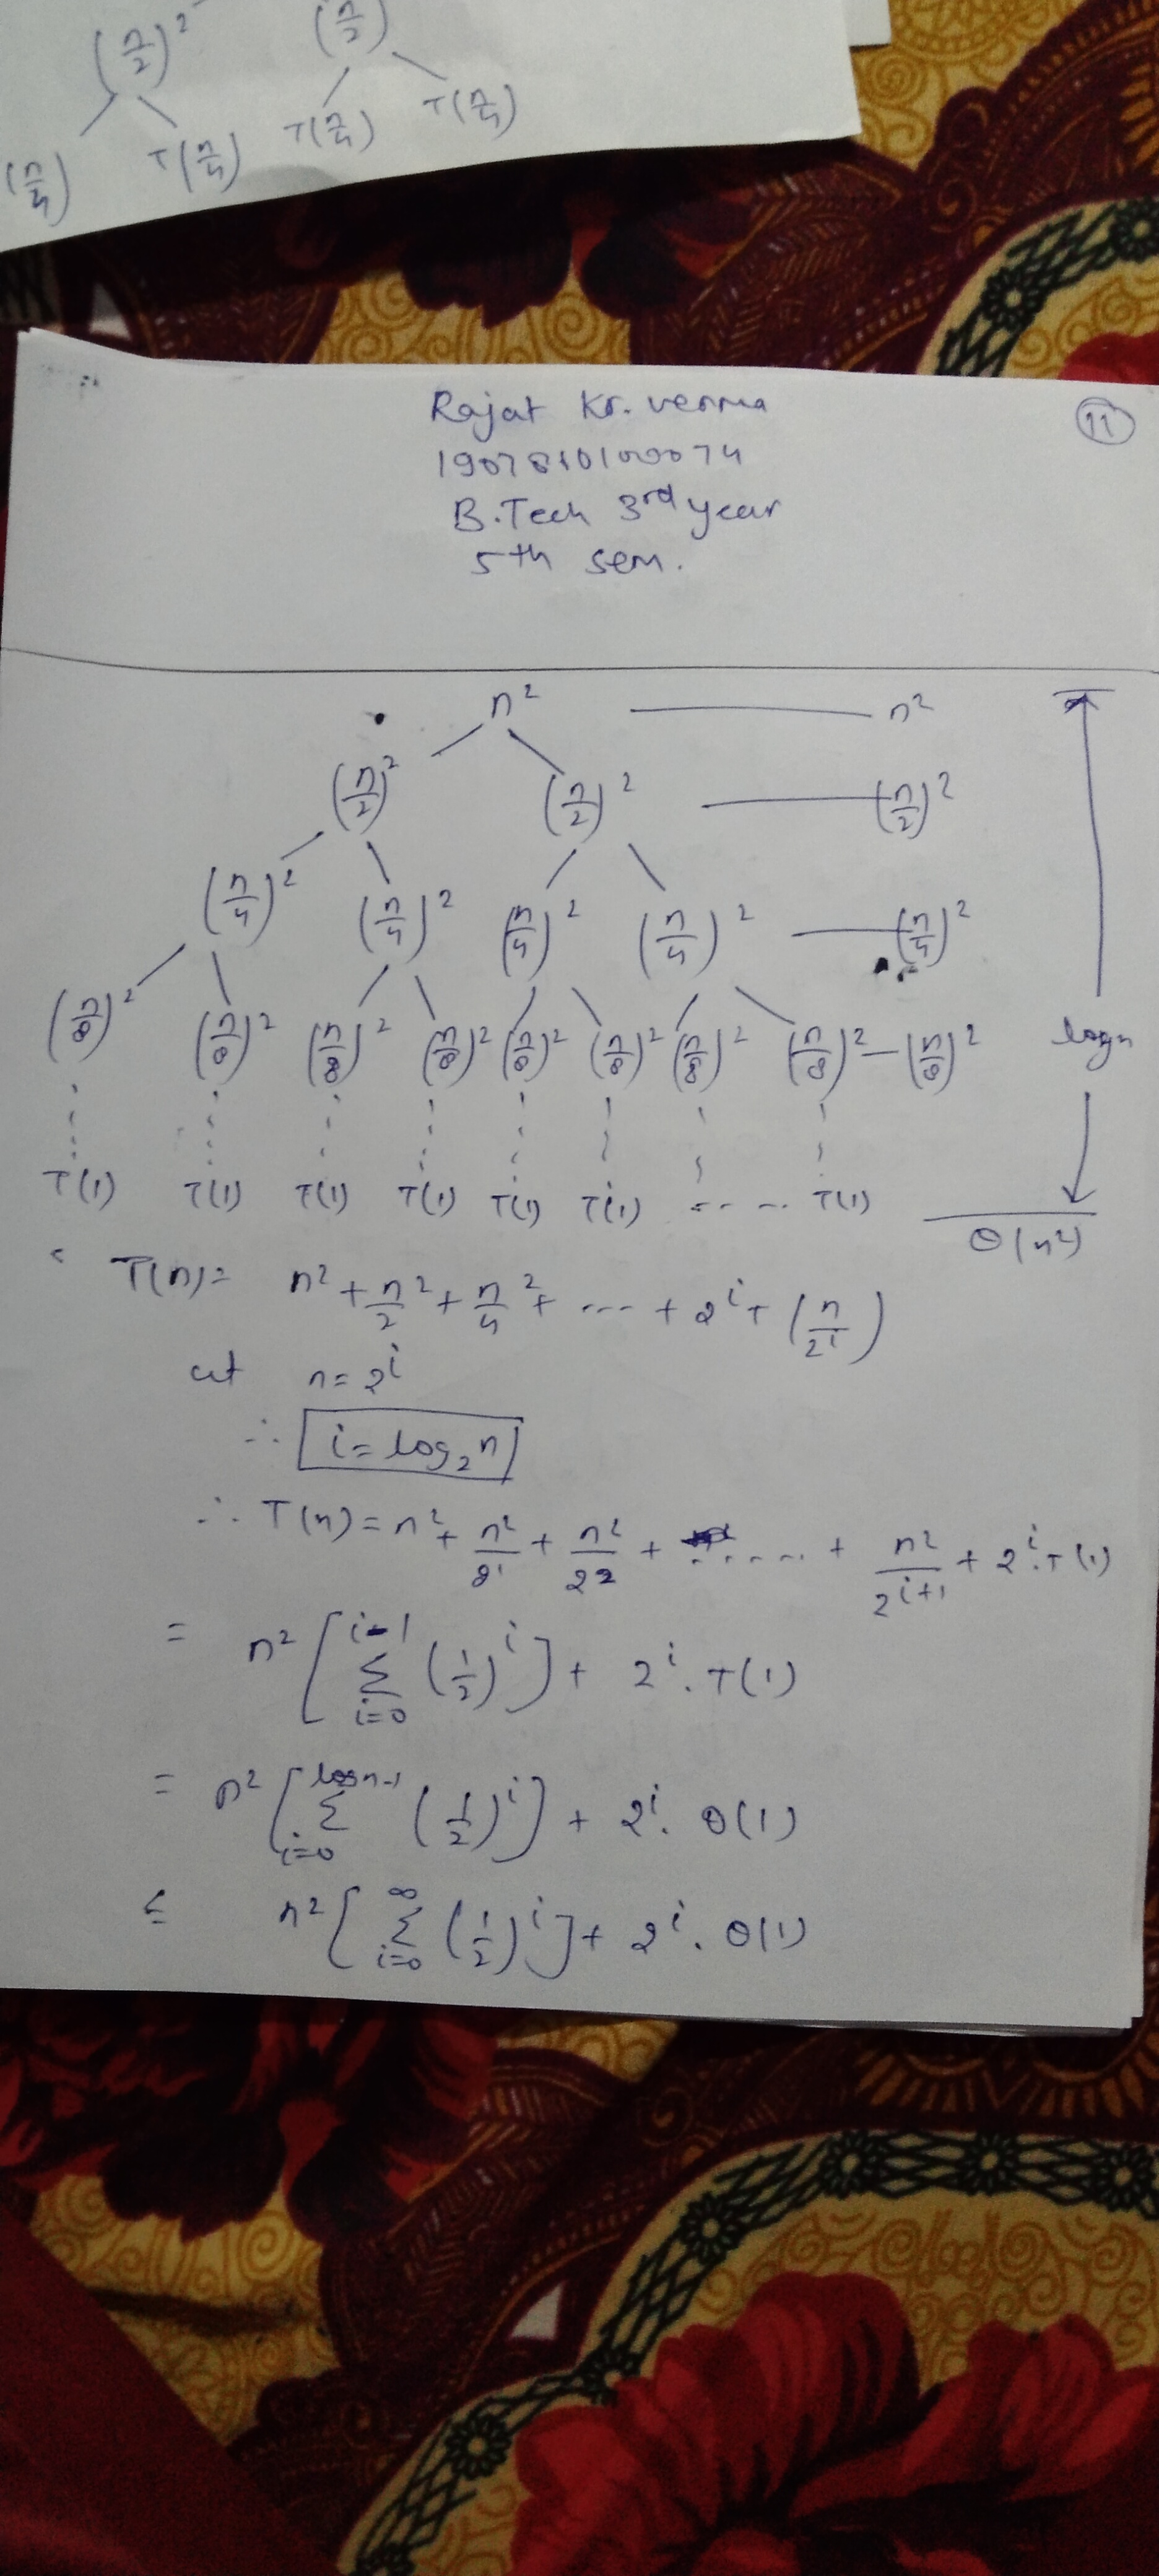 (n/2)² (n/2)
(n/4) T(n/4) T(n/4) T(n/4)
Rajat Kr. verma
11
B.Tech 3rd year
5th sem.
n² — n²
(n/2)² (n/2)² — (n/2)²
(n/4)² (n/4)² (n/4)² (n/4)² — (n/4)²
(n/8)² (n/8)² (n/8)² (n/8)² (n/8)² (n/8)² (n/8)² (n/8)² — (n/8)² logn
T(1) T(1) T(1) T(1) T(1) T(1) ---- T(1)
Θ(n²)
T(n) = n² + n/2² + n/4² + --- + 2ⁱT(n/2ⁱ)
at n = 2ⁱ
∴ i = log₂n
∴ T(n) = n² + n²/2¹ + n²/2² + ..... + n²/2ⁱ⁺¹ + 2ⁱ.T(1)
= n² [ i-1 Σ i=0 (1/2)ⁱ ] + 2ⁱ.T(1)
= n² [ logn-1 Σ i=0 (1/2)ⁱ ] + 2ⁱ. Θ(1)
≤ n² [ ∞ Σ i=0 (1/2)ⁱ ] + 2ⁱ. Θ(1)